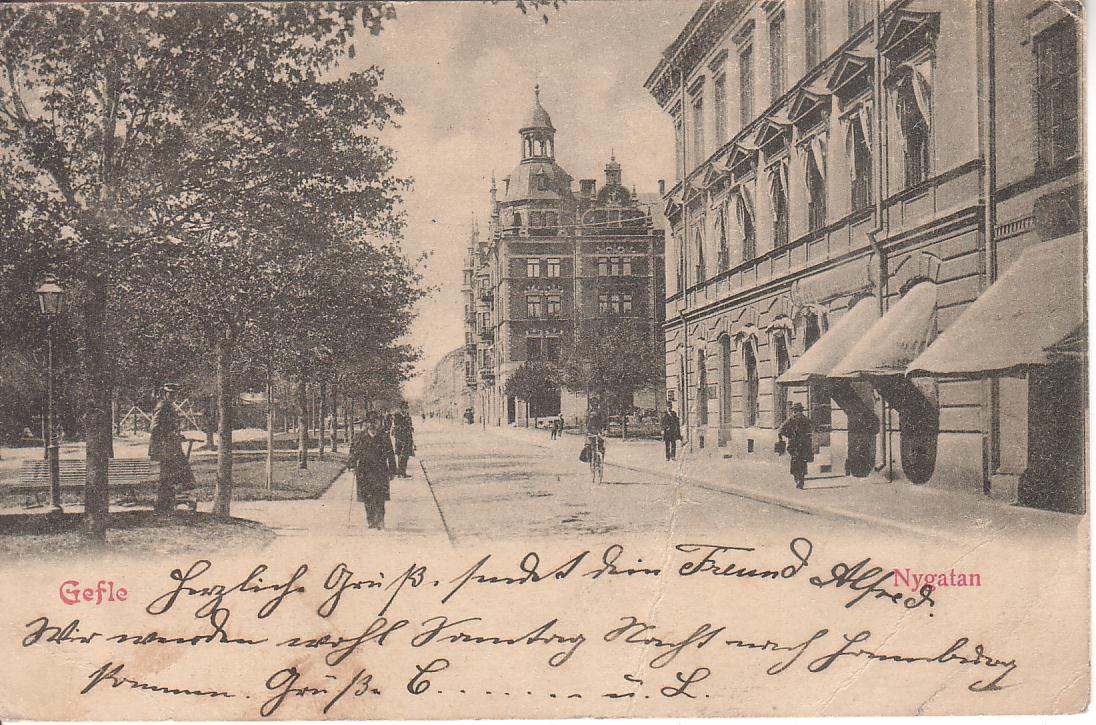 Gefle
Herzliche Grüß. sendet dein Freund Alfred.
Nygatan
Wir werden wohl Samtag Nacht nach Hamburg
kommen. Grüß. C........ u. L.